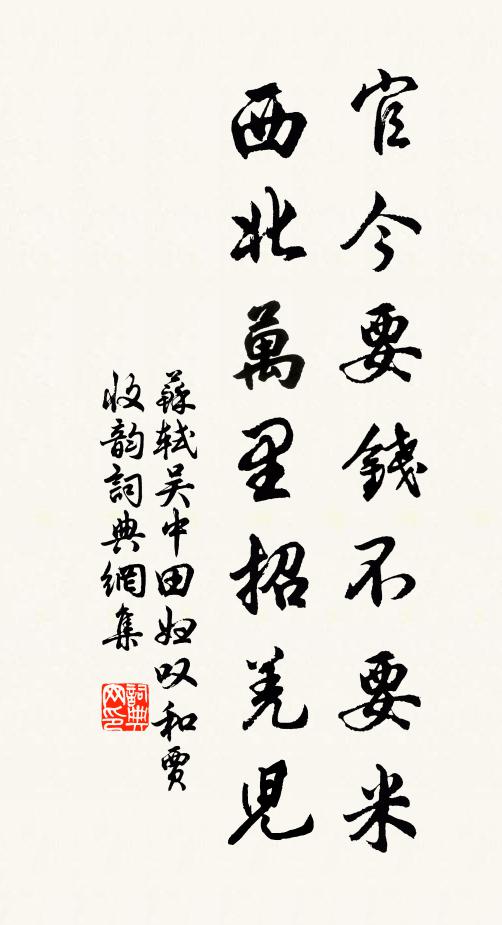 官今要錢不要米
西北萬里招羌兒
蘇軾吴中田婦叹和賈
收韵詞典網集
詞典网印